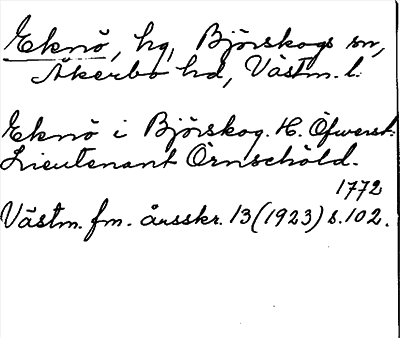 Eknö, hg, Björskogs sn,
Åkerbo hd, Västm. l.
Eknö i Björskog. H. Öfwerst-
Lieutenant Örnschöld.
1772
Västm. fm. årsskr. 13 (1923) s. 102.